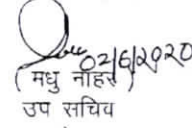 02/6/2020
( मधु नाहर )
उप सचिव